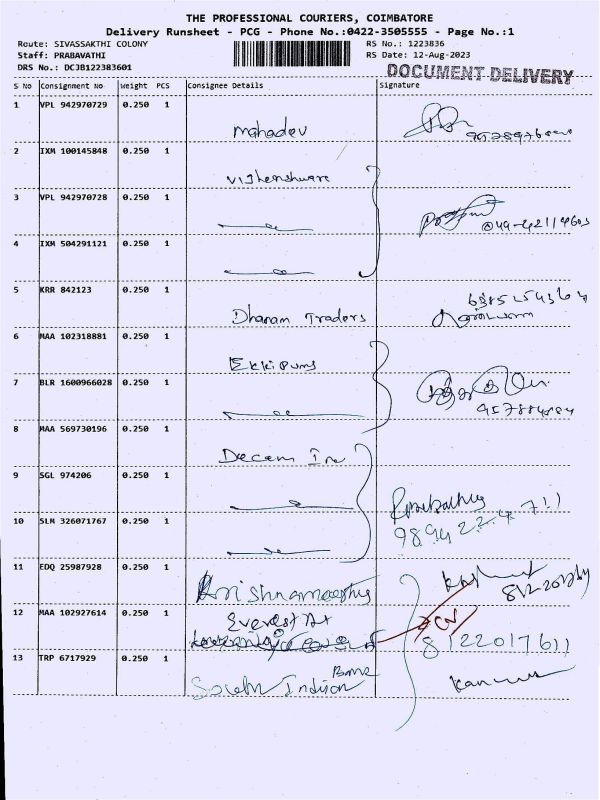 THE PROFESSIONAL COURIERS, COIMBATORE
Delivery Runsheet - PCG - Phone No.:0422-3505555 - Page No.:1
Route: SIVASSAKTHI COLONY RS No.: 1223836
Staff: PRABAVATHI RS Date: 12-Aug-2023
DRS No.: DCJB122383601 DOCUMENT DELIVERY
S No Consignment No Weight PCS Consignee Details Signature
1 VPL 942970729 0.250 1
Mahadev
2 IXM 100145848 0.250 1
Vighenshware
3 VPL 942970728 0.250 1
4 IXM 504291121 0.250 1
5 KRR 842123 0.250 1
Dhanam Traders
6 MAA 102318881 0.250 1
Ekki Pums
7 BLR 1600966028 0.250 1
8 MAA 569730196 0.250 1
Decem Ine
9 SGL 974206 0.250 1
10 SLM 326071767 0.250 1
9894224711
11 EDQ 25987928 0.250 1
Krishnamoorthy
12 MAA 102927614 0.250 1
Everest Ax
8122017611
13 TRP 6717929 0.250 1
South Indian Bank